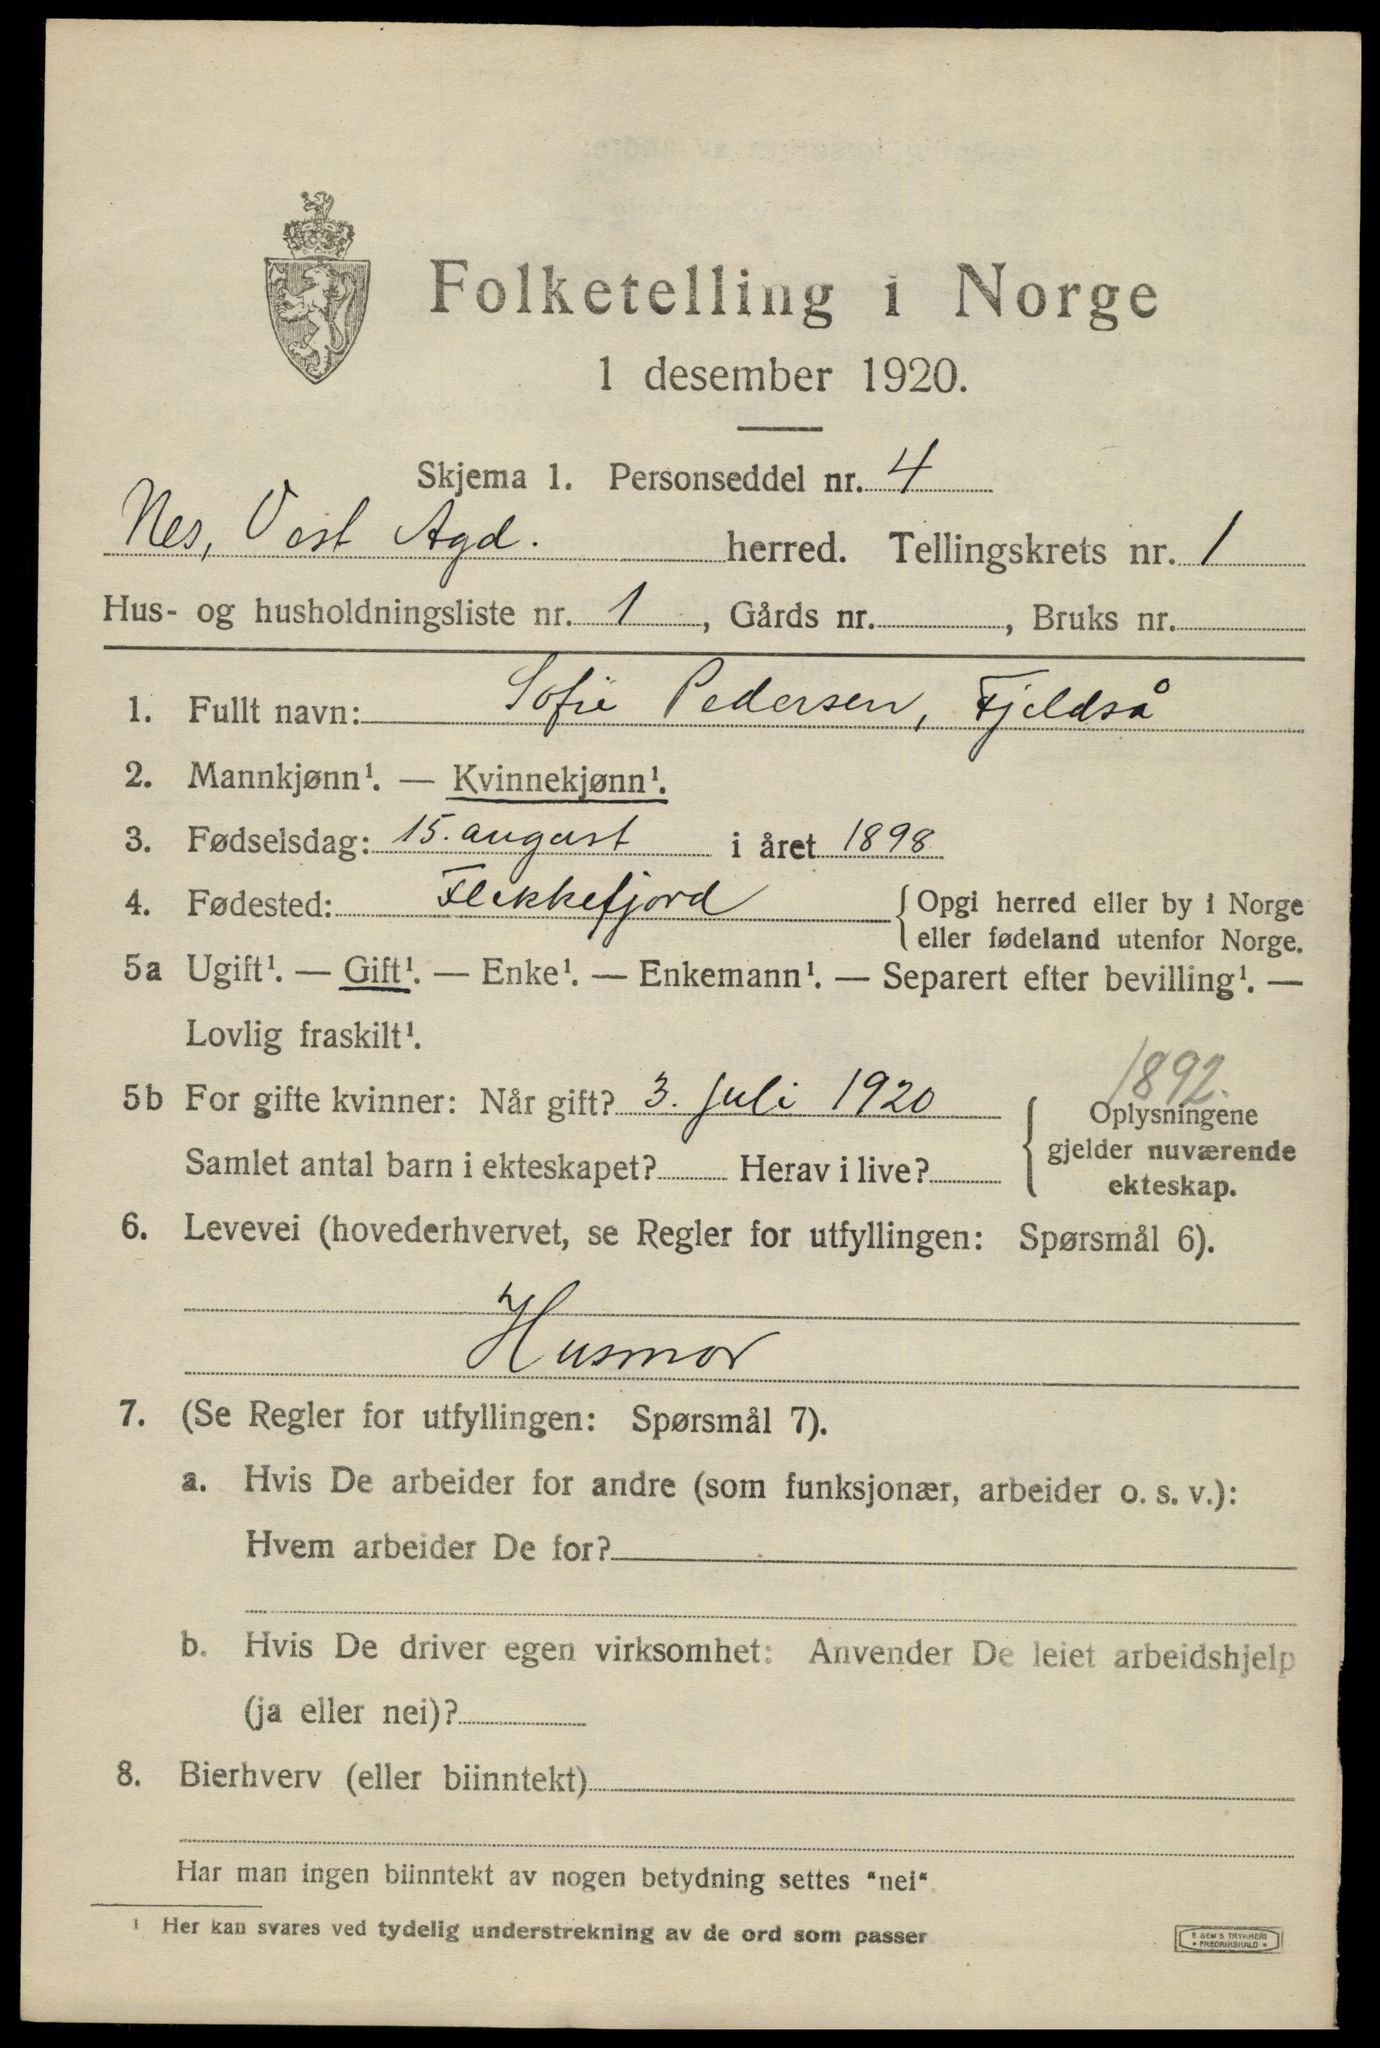 Folketelling i Norge
1 desember 1920.
Skjema 1. Personseddel nr. 4
Nes, Vest Agd. herred. Tellingskrets nr. 1
Hus- og husholdningsliste nr. 1, Gårds nr. , Bruks nr.
1. Fullt navn: Sofie Pedersen, Fjeldså
2. Mannkjønn¹. — Kvinnekjønn¹.
3. Fødselsdag: 15. august i året 1898
4. Fødested: Flekkefjord { Opgi herred eller by i Norge
eller fødeland utenfor Norge.
5a Ugift¹. — Gift¹. — Enke¹. — Enkemann¹. — Separert efter bevilling¹. —
Lovlig fraskilt¹.
1892.
5b For gifte kvinner: Når gift? 3. juli 1920
Samlet antal barn i ekteskapet? Herav i live?
Oplysningene
gjelder nuværende
ekteskap.
6. Levevei (hovederhvervet, se Regler for utfyllingen: Spørsmål 6).
Husmor
7. (Se Regler for utfyllingen: Spørsmål 7).
a. Hvis De arbeider for andre (som funksjonær, arbeider o. s. v.):
Hvem arbeider De for?
b. Hvis De driver egen virksomhet: Anvender De leiet arbeidshjelp
(ja eller nei)?
8. Bierhverv (eller biinntekt)
Har man ingen biinntekt av nogen betydning settes "nei".
¹ Her kan svares ved tydelig understrekning av de ord som passer
E SEM'S TRYKKERI
• FREDRIKSHALD •